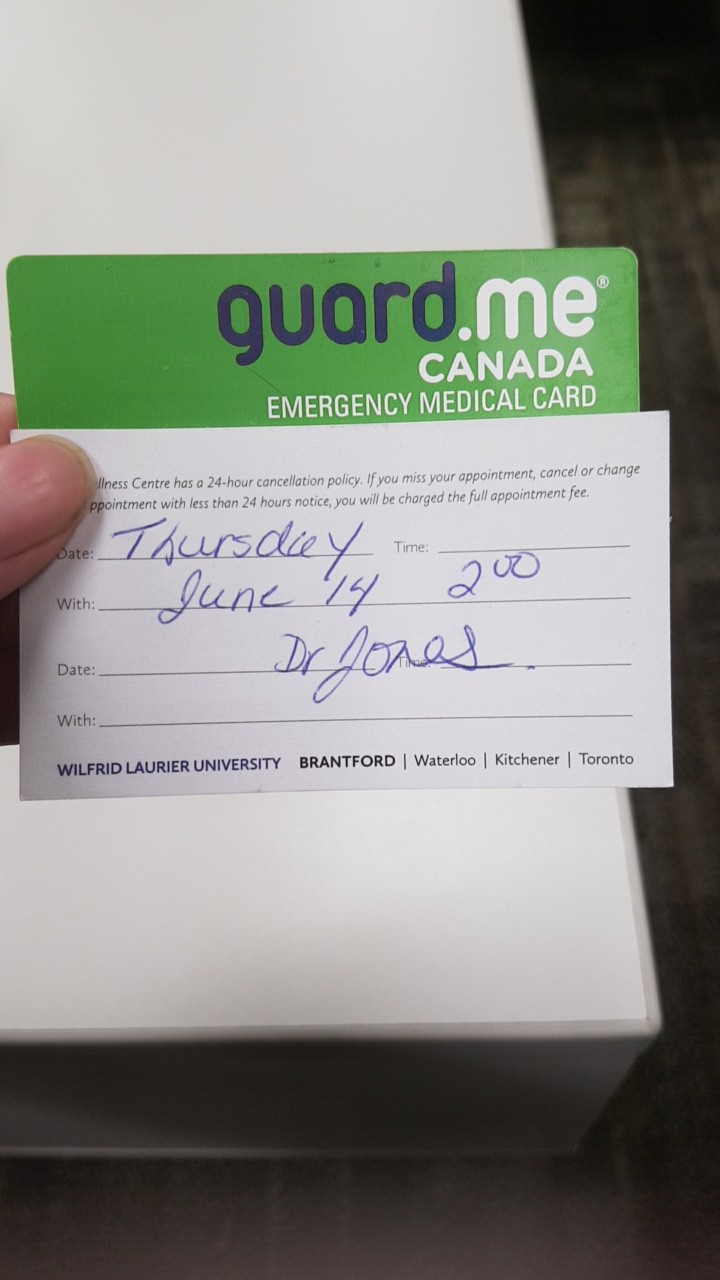 guard.me®
CANADA
EMERGENCY MEDICAL CARD
llness Centre has a 24-hour cancellation policy. If you miss your appointment, cancel or change
ppointment with less than 24 hours notice, you will be charged the full appointment fee.
Date: Thursday Time:
With: June 14 2:00
Date: Dr Jones Time:
With:
WILFRID LAURIER UNIVERSITY BRANTFORD | Waterloo | Kitchener | Toronto